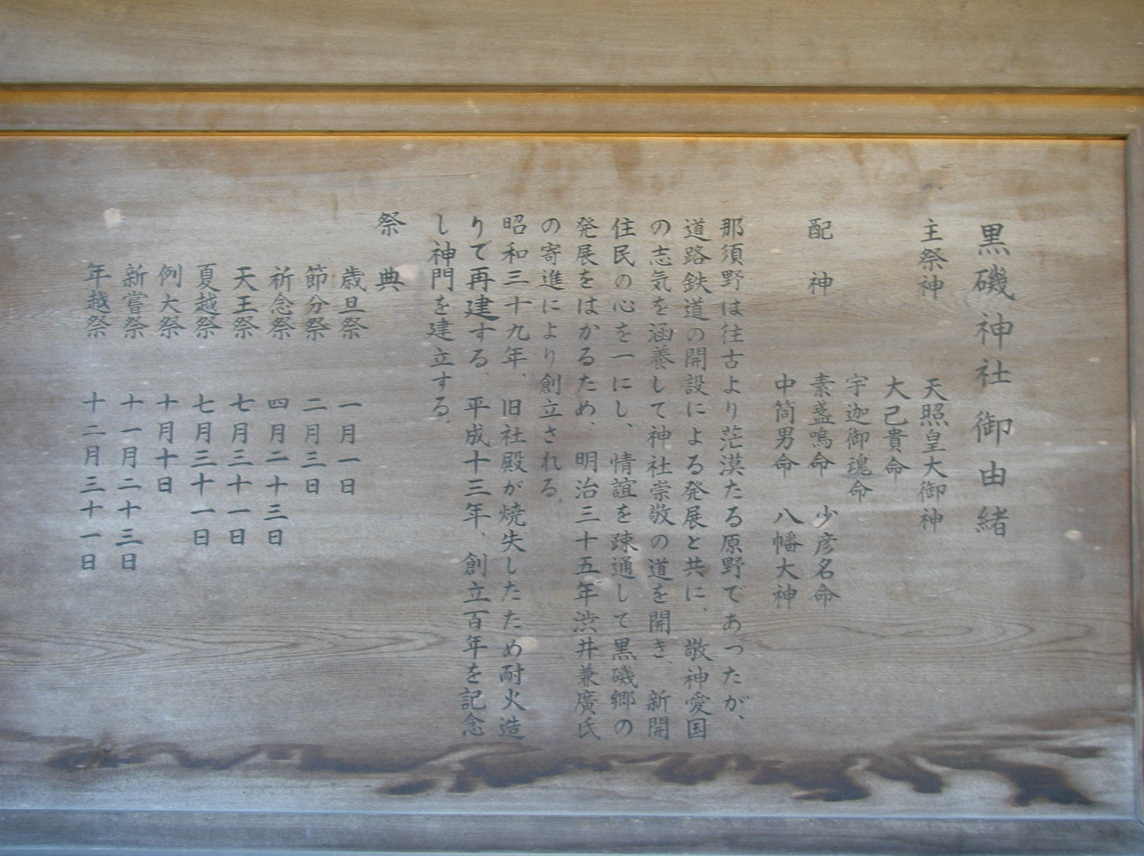 黒磯神社御由緒
主祭神 天照皇大御神
大己貴命
宇迦御魂命
配神 素盞嗚命 少彦名命
中筒男命 八幡大神
那須野は往古より茫漠たる原野であったが、
道路鉄道の開設による発展と共に、敬神愛国
の志気を涵養して神社崇敬の道を開き、新開
住民の心を一にし、情誼を疎通して黒磯郷の
発展をはかるため、明治三十五年渋井兼廣氏
の寄進により創立される。
昭和三十九年、旧社殿が焼失したため耐火造
りで再建する。平成十三年、創立百年を記念
し神門を建立する。
祭典
歳旦祭 一月一日
節分祭 二月三日
祈念祭 四月二十三日
天王祭 七月三十一日
夏越祭 七月三十一日
例大祭 十月十日
新嘗祭 十一月二十三日
年越祭 十二月三十一日